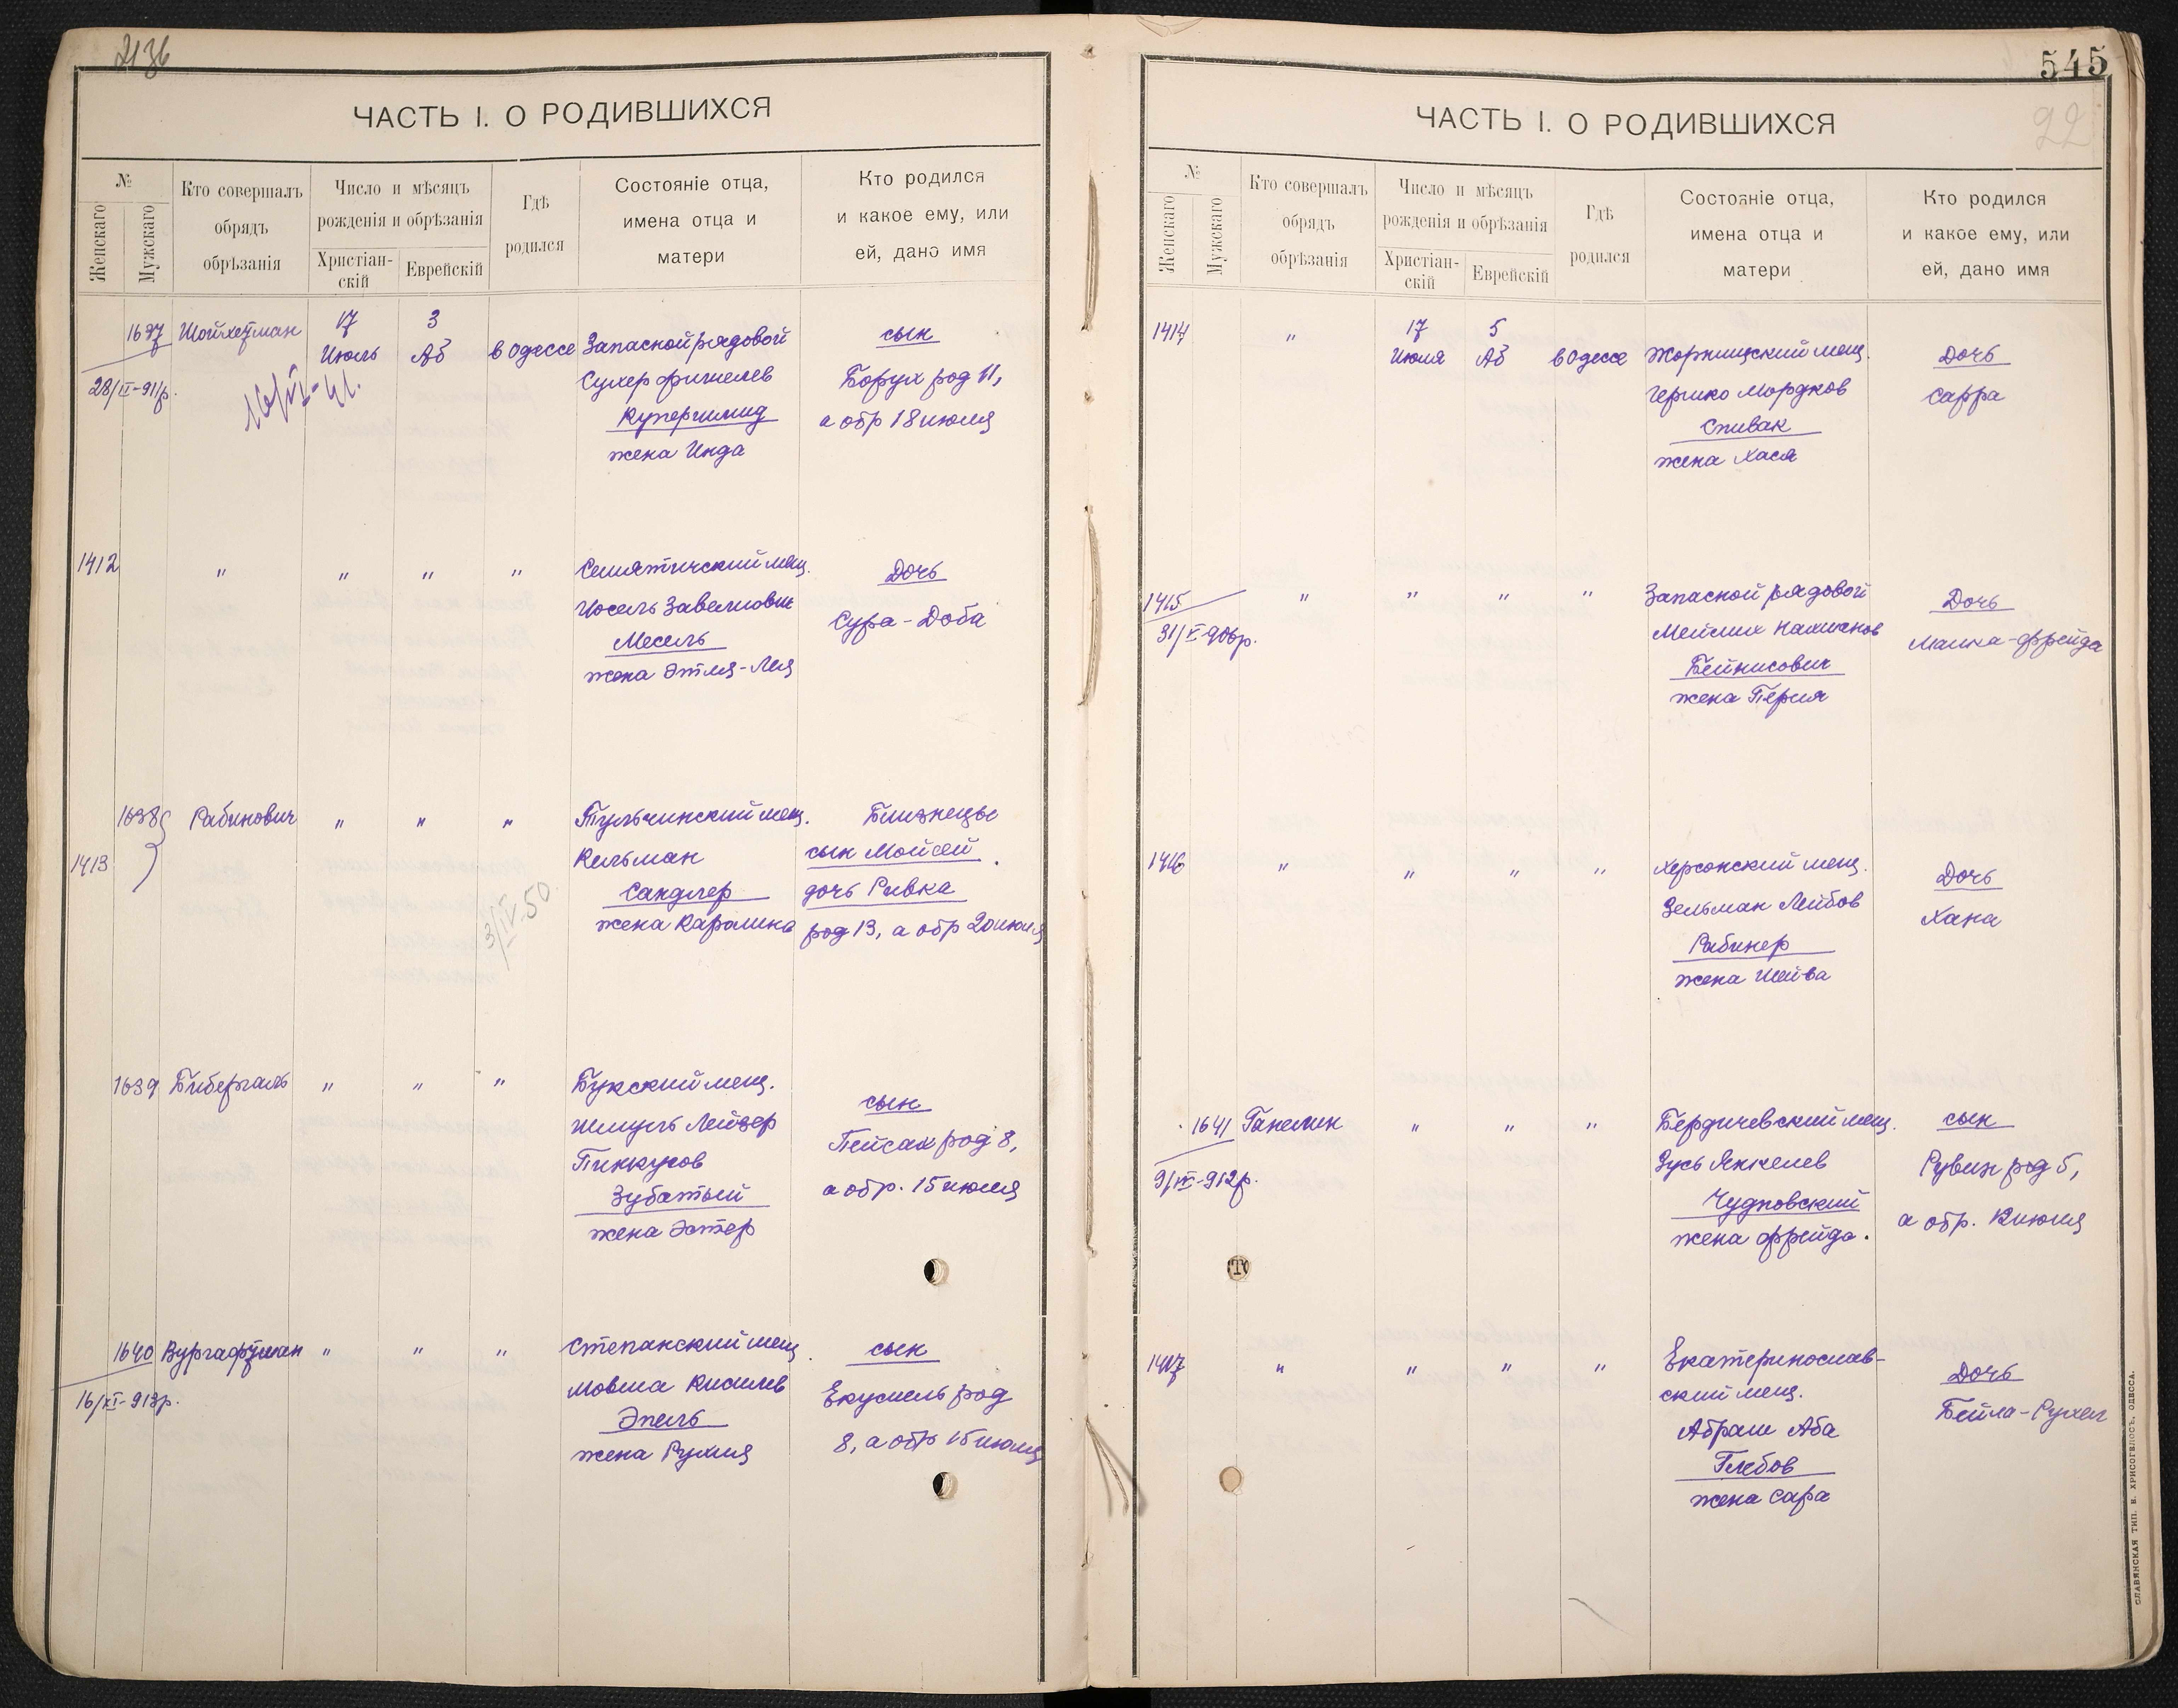 2136
ЧАСТЬ I. О РОДИВШИХСЯ
№
Женскаго
Мужскаго
Кто совершалъ
обрядъ
обрѣзанія
Число и мѣсяцъ
рожденія и обрѣзанія
Христіан-
скій
Еврейскій
Гдѣ
родился
Состояніе отца,
имена отца и
матери
Кто родился
и какое ему, или
ей, дано имя
1637
Шойхетман
17
Июль
3
Аб
в Одессе
Запасной рядовой
Сухер Фишелев
Купершмид
жена Инда
сын
Борух род 11,
а обр 18 июля
28/II-911р.
16/VI-41.
1412
"
"
"
"
Семятический мещ.
Иосель Завелиович
Месель
жена Этля-Лея
Дочь
Сура-Доба
1638
1413
Рабинович
"
"
"
Тульчинский мещ.
Кельман
Сандлер
жена Каролина
Близнецы
сын Мойсей
дочь Ривка
род 13, а обр 20 июля
3/IV-50
1639
Бибергаль
"
"
"
Букский мещ.
Шмуль Лейзер
Пинкусов
Зубатый
жена Эстер
сын
Пейсах род 8,
а обр. 15 июля
1640
Вургафтман
"
"
"
Степанский мещ.
Мовша Киселев
Эпель
жена Рухля
сын
Екусиель род
8, а обр 15 июля
16/XI-913р.
545
22
ЧАСТЬ I. О РОДИВШИХСЯ
№
Женскаго
Мужскаго
Кто совершалъ
обрядъ
обрѣзанія
Число и мѣсяцъ
рожденія и обрѣзанія
Христіан-
скій
Еврейскій
Гдѣ
родился
Состояніе отца,
имена отца и
матери
Кто родился
и какое ему, или
ей, дано имя
1414
"
17
Июля
5
Аб
в Одессе
Жорнищский мещ.
Гершко Мордков
Спивак
жена Хася
Дочь
Сарра
1415
"
"
"
"
Запасной рядовой
Мейлих Нахманов
Бейнисович
жена Перля
Дочь
Малка-Фрейда
31/V-906р.
1416
"
"
"
"
Херсонский мещ.
Зельман Лейбов
Рабинер
жена Шейва
Дочь
Хана
1641
Ганелин
"
"
"
Бердичевский мещ.
Зусь Янкелев
Чудновский
жена Фрейда.
сын
Рувин род 5,
а обр. 12 июля
1417
"
"
"
"
Екатеринослав-
ский мещ.
Абрам Аба
Глебов
жена Сара
Дочь
Бейла-Рухел
СЛАВЯНСКАЯ ТИП. Н. ХРИСОГЕЛОСЪ, ОДЕССА.